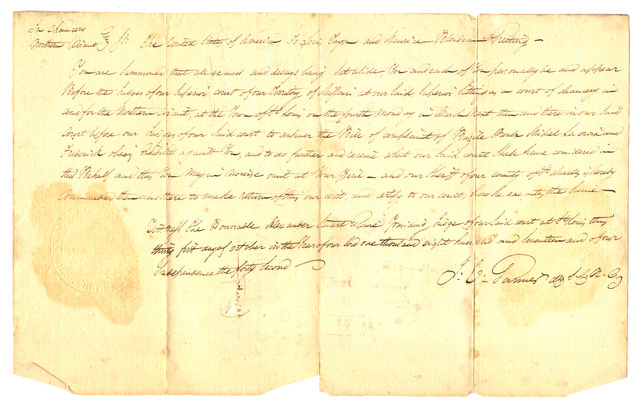 In Chancery
Northern Circuit } Ss. The United States of America To Louis and Maurice Greeting —
You are Summoned that all excuses and delays being set aside You and each of You personally be and appear
Before the Judges of our Superior court of our Territory of Missouri at our said Superior sitting as a court of chancery in
and for the Northern Circuit, at the Town of St Louis on the fourth Monday in March Next then and there in our said
Court before our Judges of our said court to answer the Bill of complaint of
Frederick against You, and to do further and receive what our said court shall have considered in
this Behalf and this You May in no wise omit at Your Peril — and our Sheriff of our county of St is hereby
commanded then and there to make return of this our writ, and certify to our court, how he executes the same —
Witness The Honorable Alexander Stuart Esquire Presiding Judge of our said court at St Louis this
thirty first day of October in the Year of our Lord one thousand eight hundred and seventeen and of our
Independence the forty second